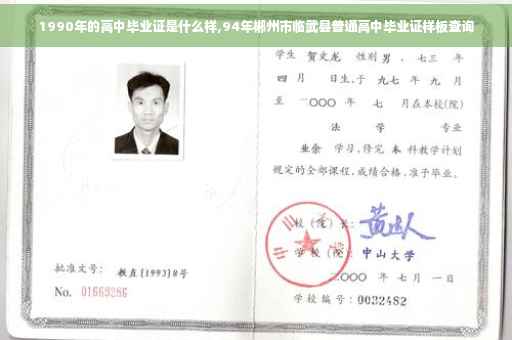 1990年的高中毕业证是什么样,94年郴州市临武县普通高中毕业证样板查询
学生 贺文龙 性别 男 、七三 年
四 月 日生,于 九七 年 九 月
至 二○○○ 年 七 月在本校(院)
法 学 专业
业余 学习,修完 本 科教学计划
规定的全部课程,成绩合格,准予毕业。
校 (院) 长:
学 校 (院): 中山大学
二○○○ 年 七 月 一 日
学校编号: 0032482
批准文号: 教直[1993]8号
No. 01669286